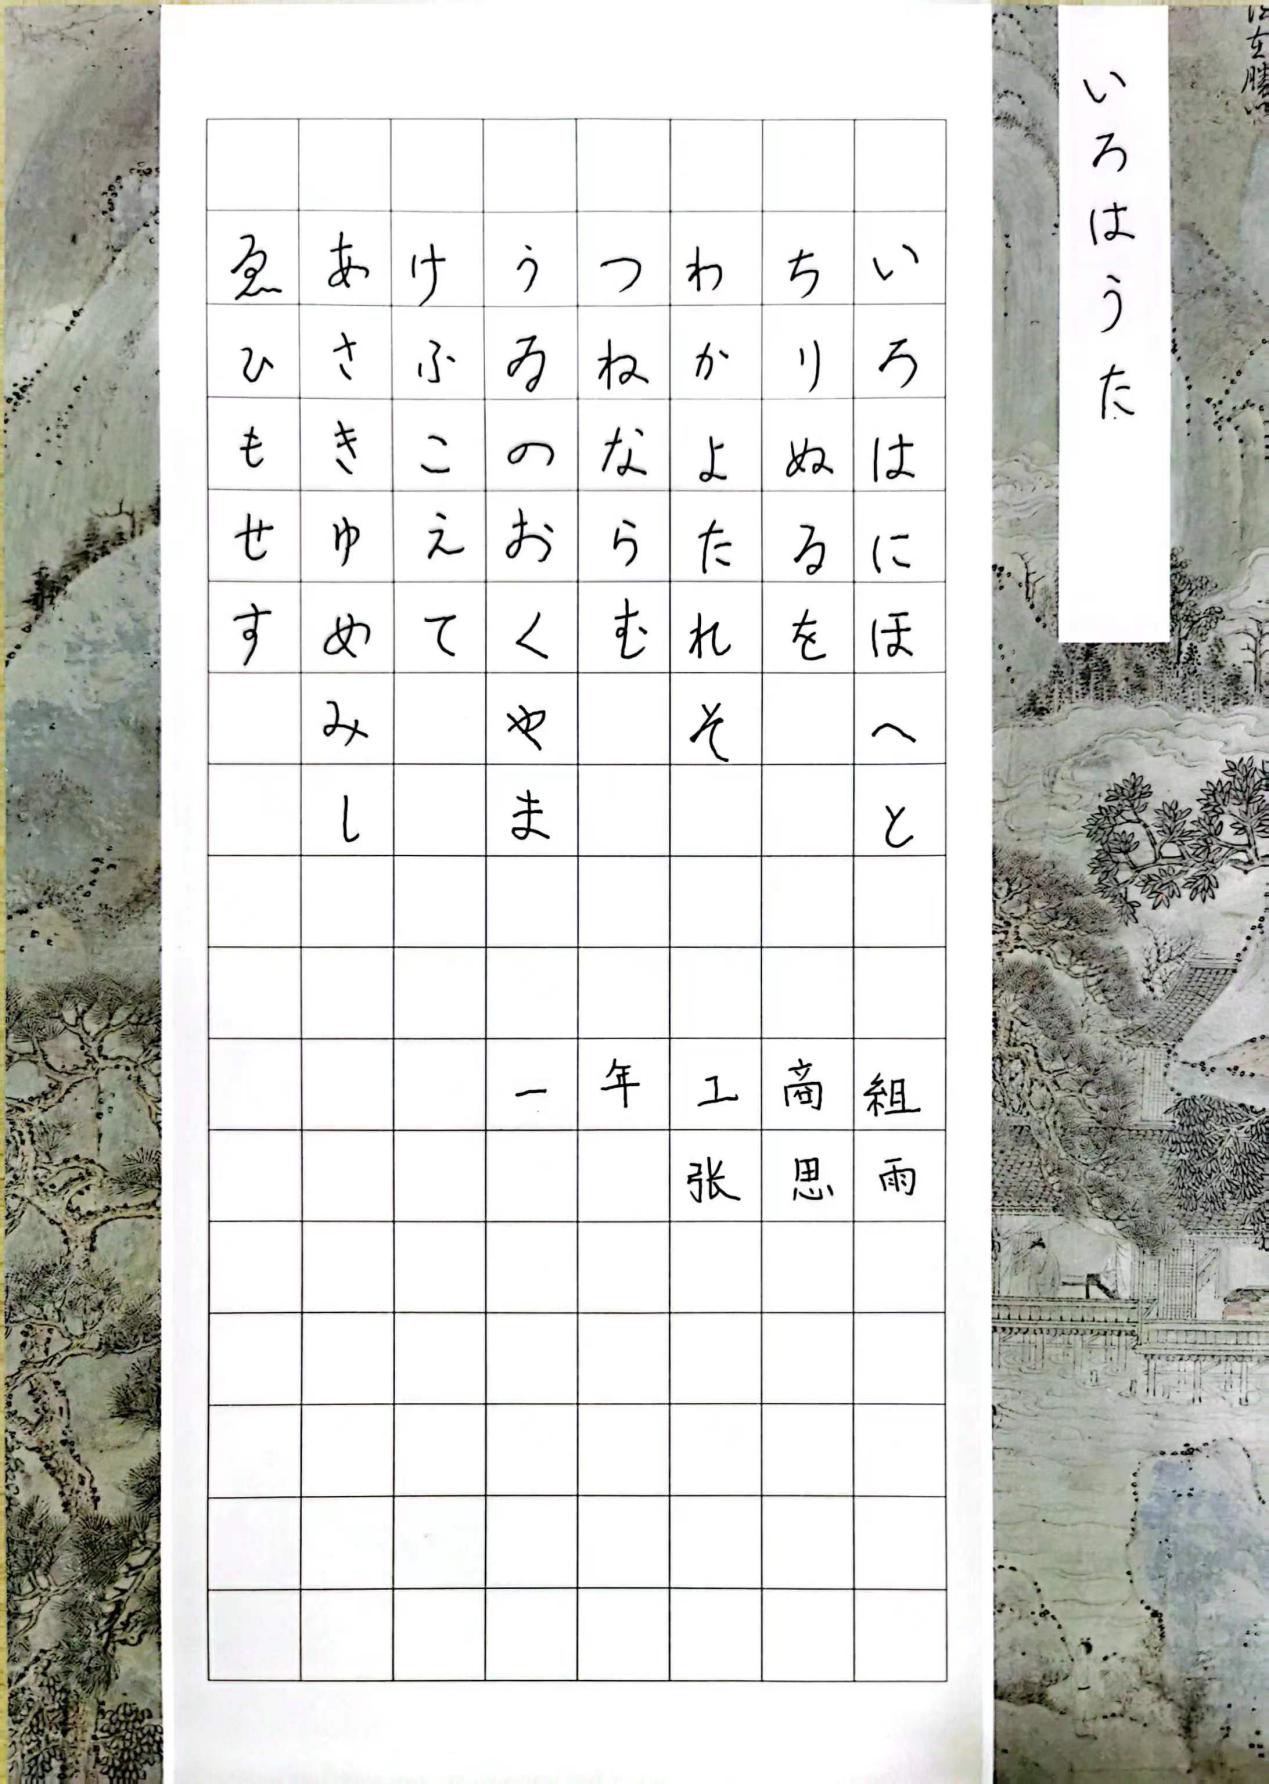 いろはうた
いろはにほへと
ちりぬるを
わかよたれそ
つねならむ
うゐのおくやま
けふこえて
あさきゆめみし
ゑひもせす
一年工商組
张思雨